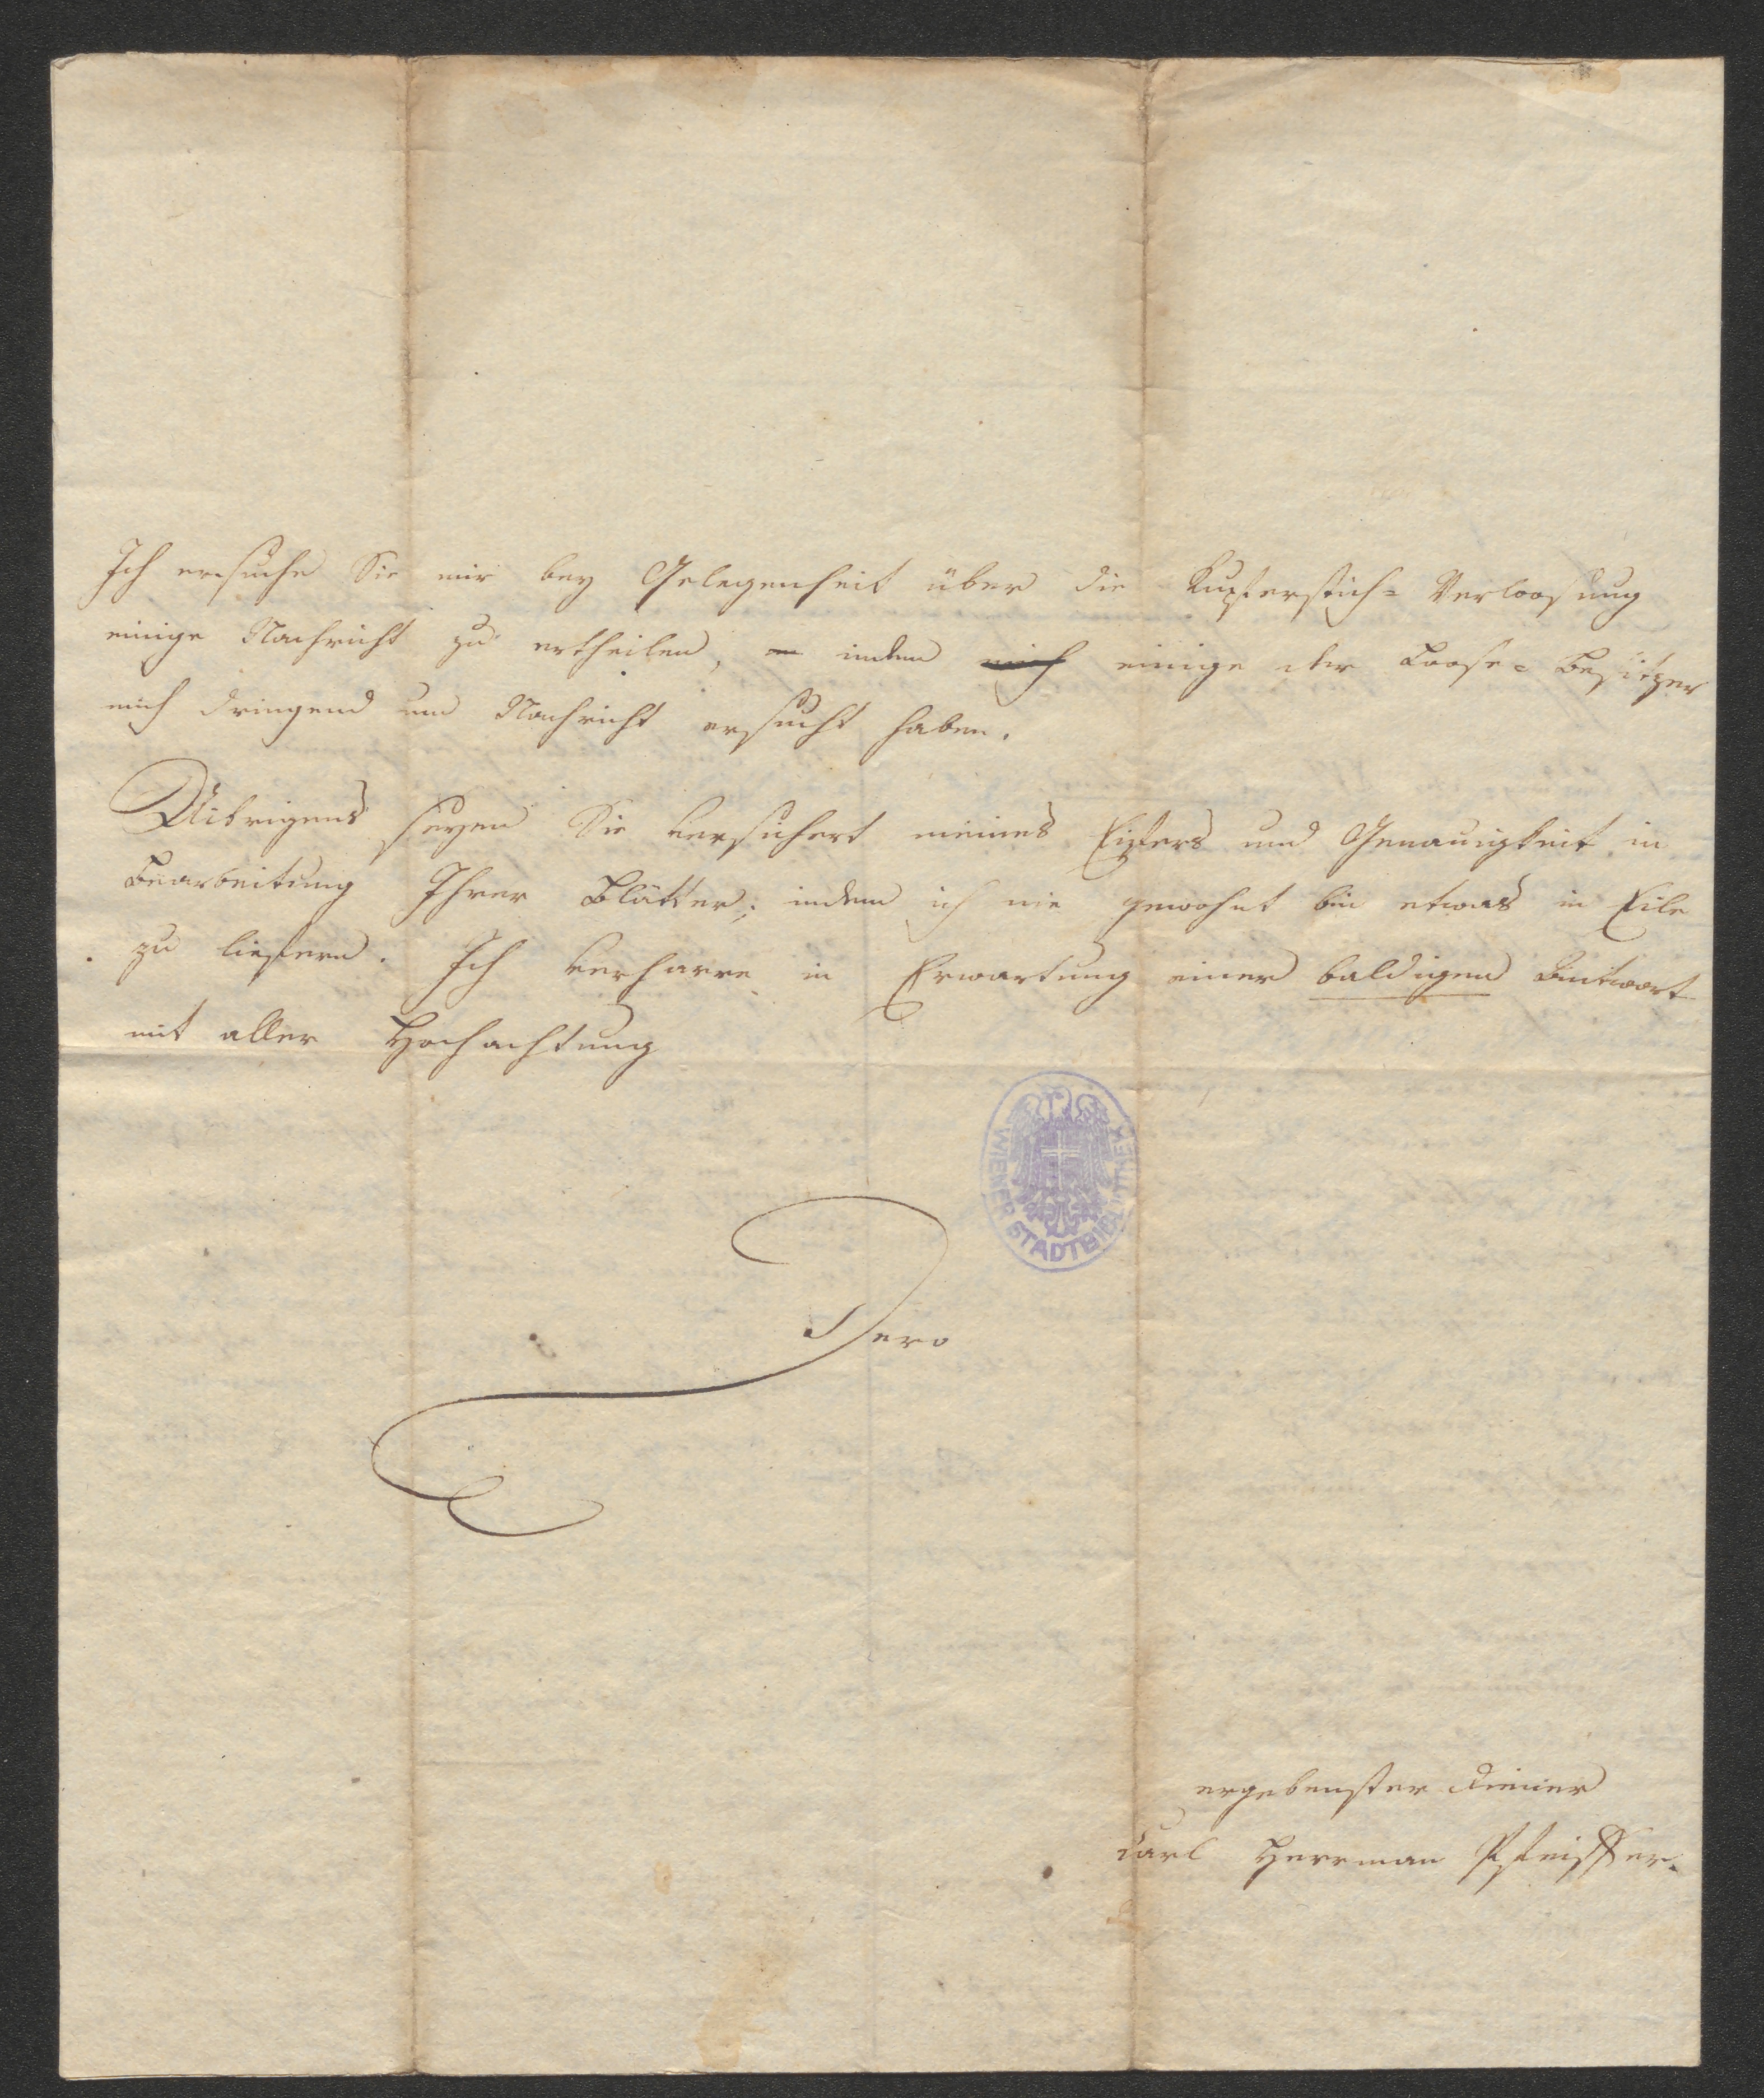 Ich ersuche Sie mir bey Gelegenheit über die Kupferstich= Verloosung
einige Nachricht zu ertheilen, indem mich einige der Loose= Besitzer
mich dringend um Nachricht ersucht haben.
Uibrigens seyen Sie versichert meines Eifers und Genauigkeit in
Bearbeitung Ihrer Blätter; indem ich nie gewohnt bin etwas in Eile
zu liefern. Ich verharre in Erwartung einer baldigen Antwort
mit aller Hochachtung
WIENER STADTBIBLIOTHEK
Dero
ergebenster Diener
Carl Herrman Pfeiffer.